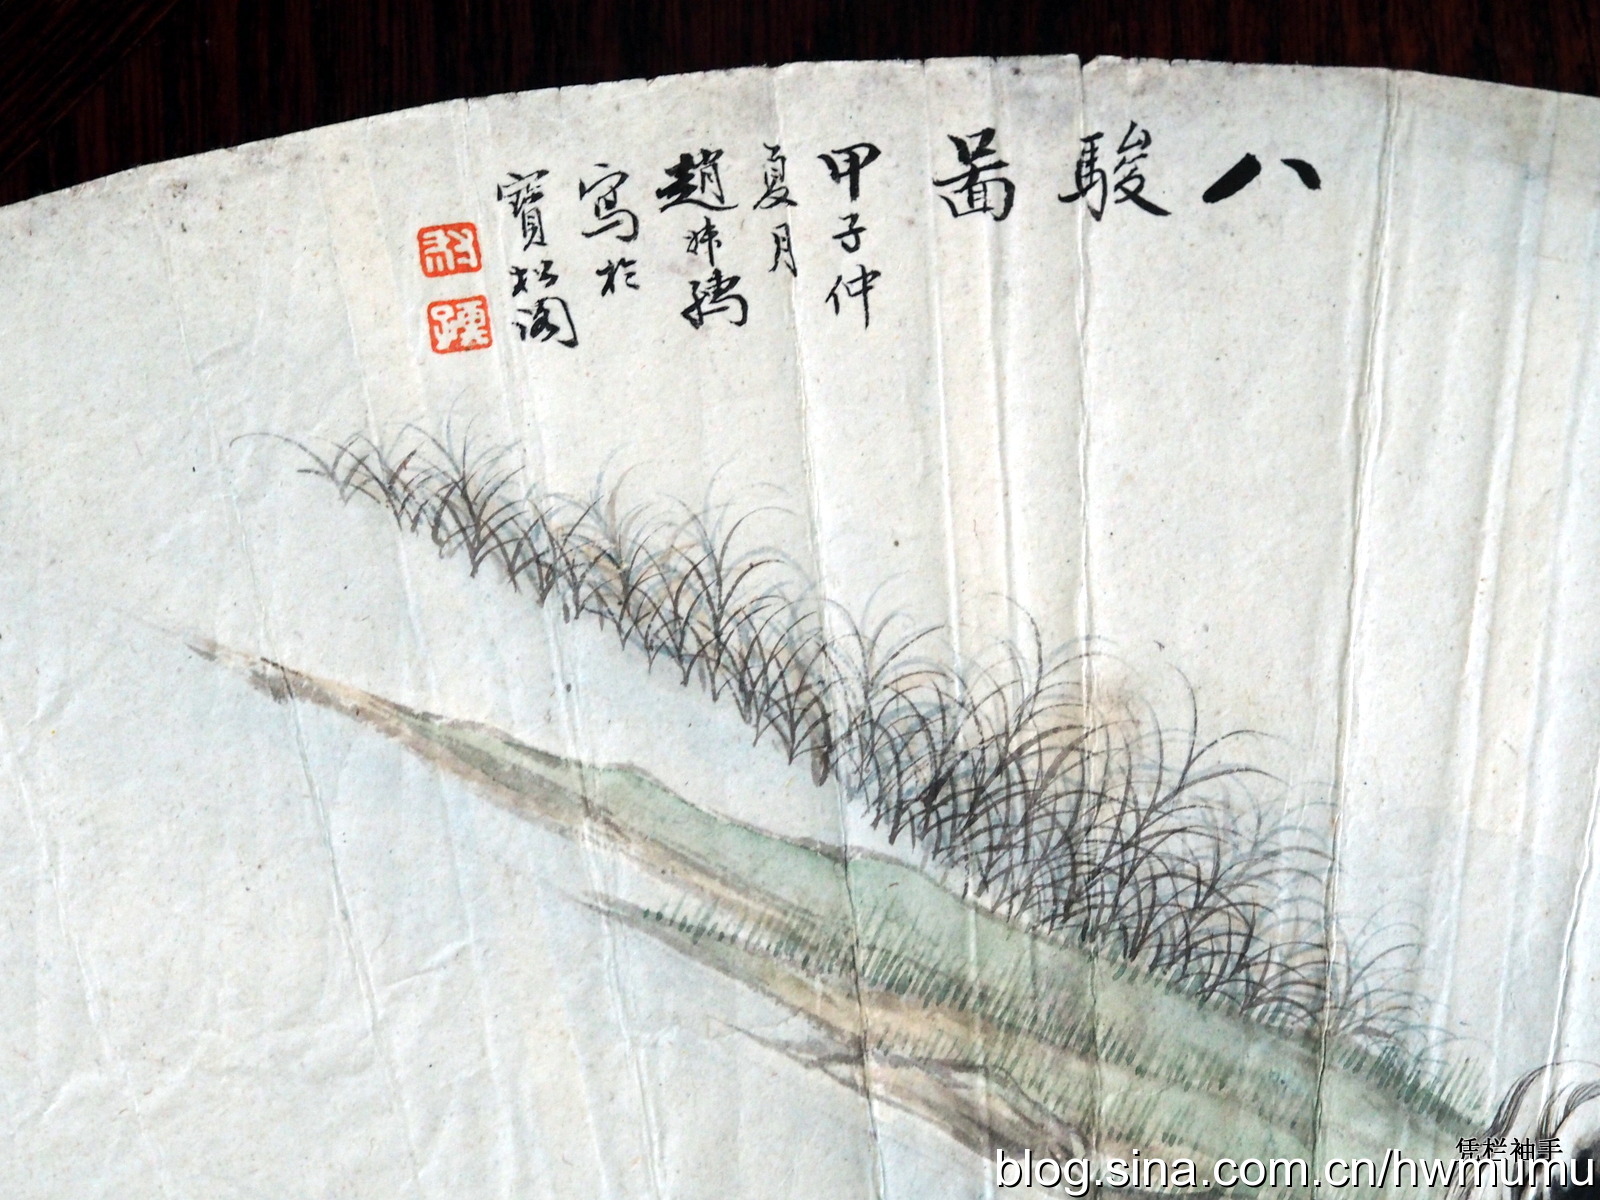 八駿啚
甲子仲
夏月
趙叔孺
寫於
寶松閣
叔
孺
凭栏袖手
blog.sina.com.cn/hwmumu